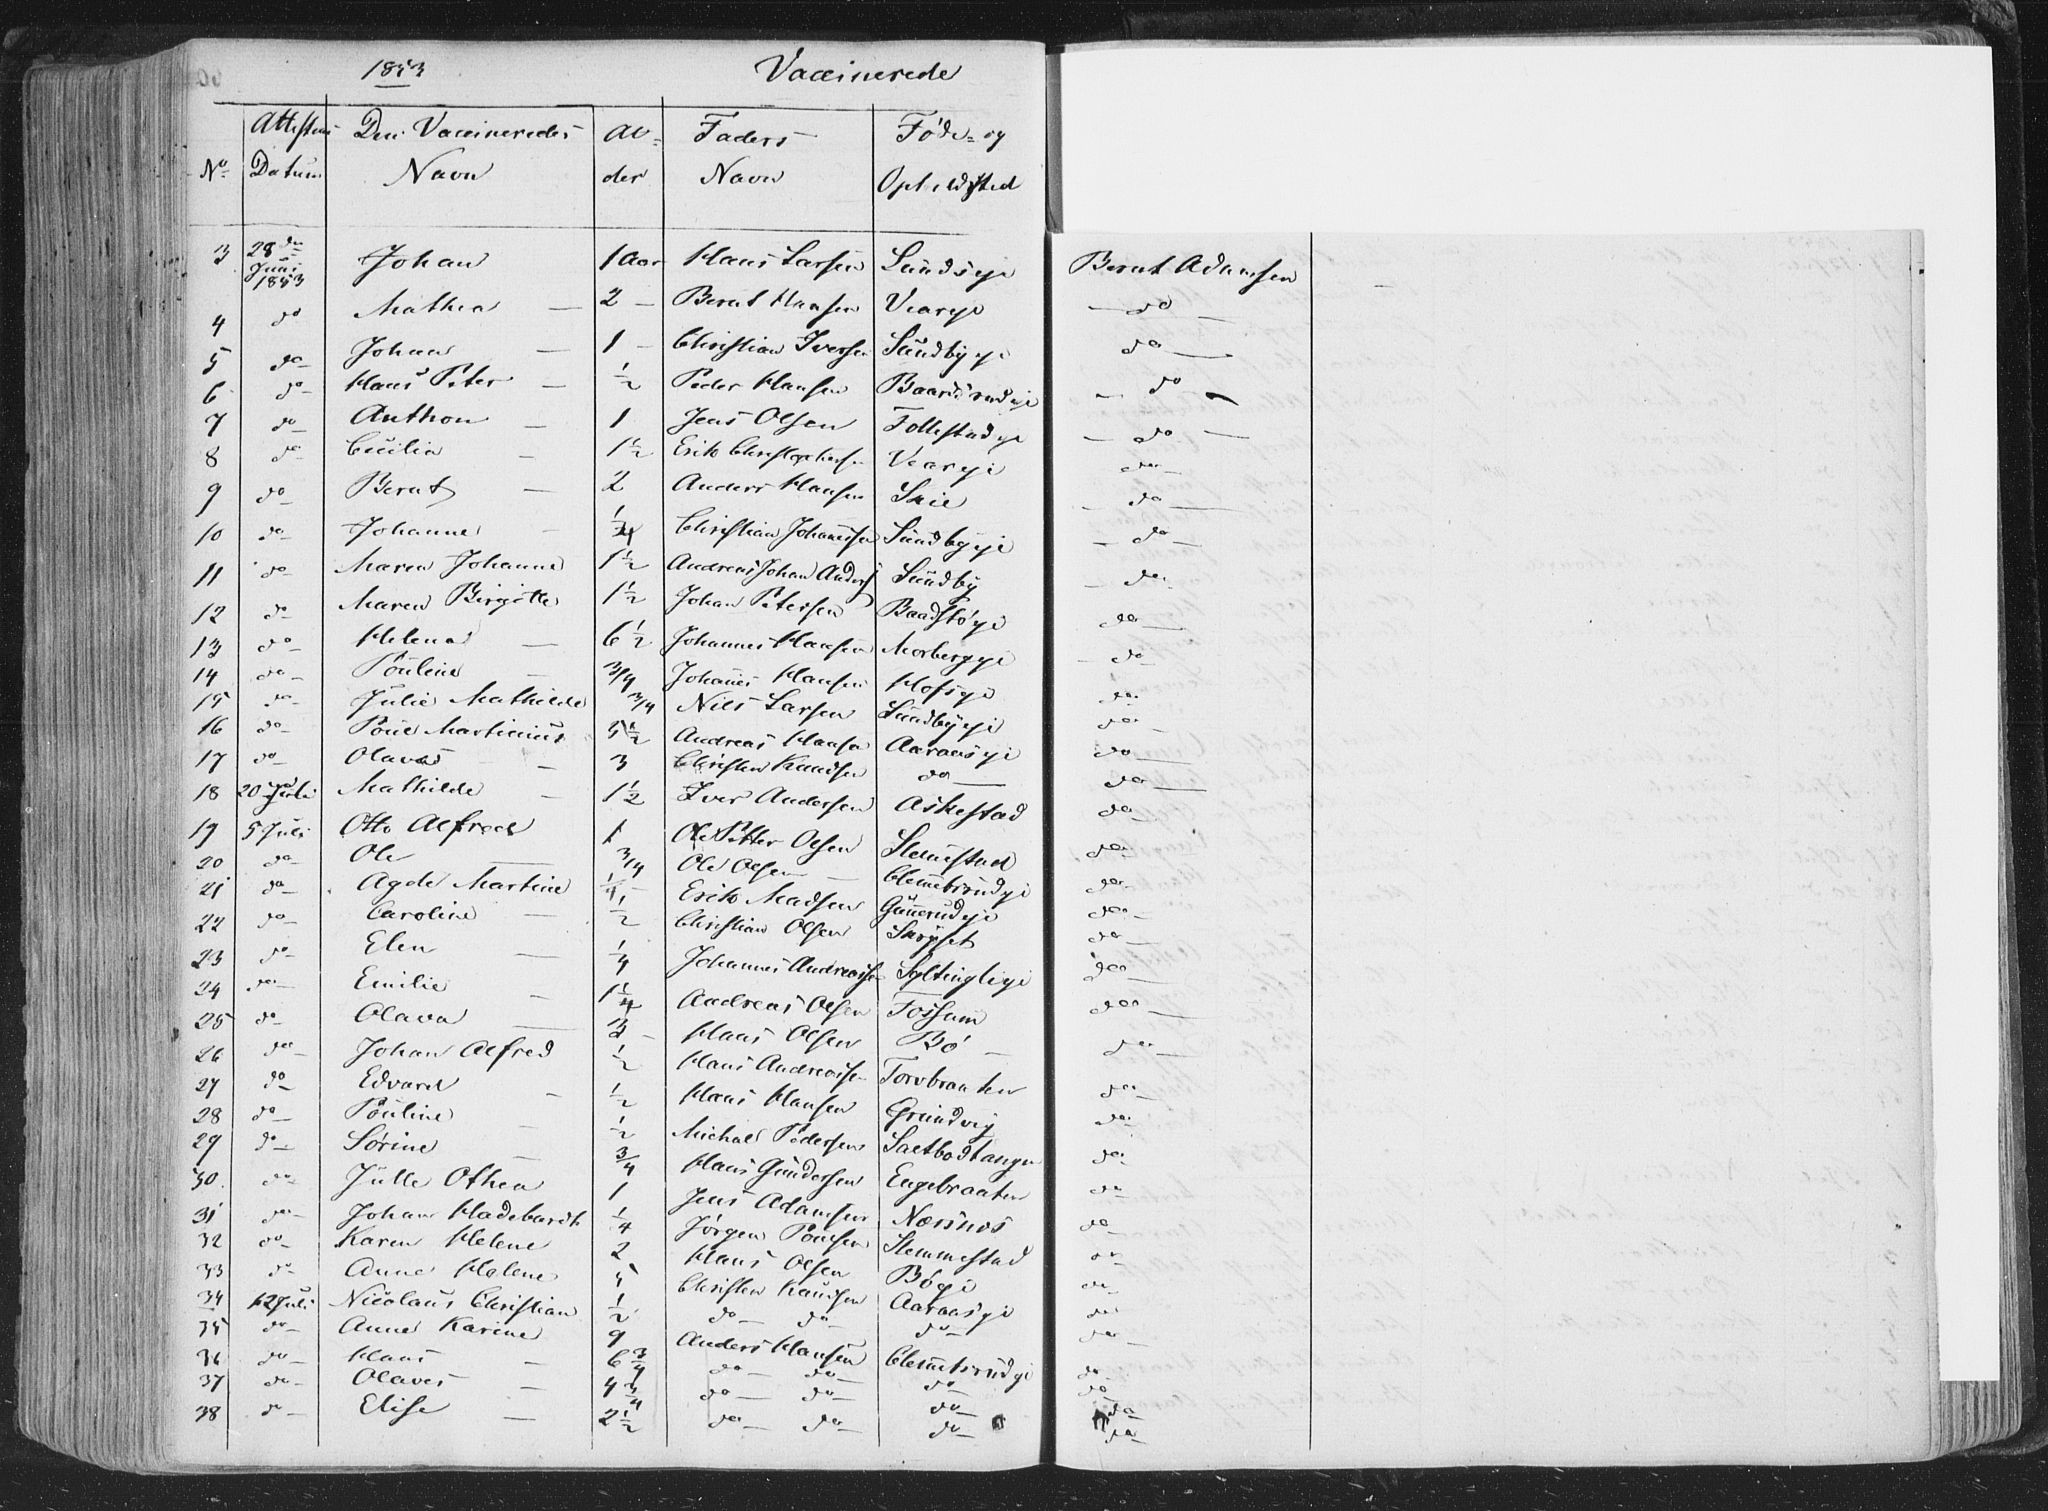 1853 Vaccinerede
No Attestens Datum Den Vaccineredes Navn Al- der Faders Navn Føde- og Opholdssted
3 28de Juni 1853 Johan 1 Aar Hans Larsen Lundseje Bernt Adamsen
4 do Mathea — 2 — Bernt Hansen Veareje — do —
5 do Johan — 1 — Christian Iversen Sundbyeje do —
6 do Hans Peter — ½ Peder Hansen Baardsrudeje — do —
7 do Anthon — 1 Jens Olsen Follestadeje — do —
8 do Cecilia — 1½ Erik Christophersen Veareje do —
9 do Bernt — 2 Anders Hansen — do —
10 do Johanne — Christian Johannesen Sundbyeje — do —
11 do Maren Johanne 1½ Andreas Johan Anders Sundby — do
12 do Maren Birgitte 1½ Johan Petersen Baadstøeje do —
13 do Helena — 6½ Johannes Hansen Morbergeje — do
14 do Pouline — 3/4 Johannes Hansen Hofseje do
15 do Julie Mathilde 3/4 Nils Larsen Sundbyeje do
16 do Poul Martinius 5½ Andreas Hansen Aaraaseje do —
17 do Olava — 3 Christen Knudsen do — do —
18 20 Juli Mathilde — 1½ Iver Andersen Askestad do
19 5 Juli Otto Alfred 1 Ole Petter Olsen Slemestad do
20 do Ole — 3/4 Ole Olsen — Clemetsrudeje do
21 do Agde Martine Erik Madsen Gunnerudeje do
22 do Caroline — ½ Christian Olsen do —
23 do Elen — ¼ Johannes Andreassen do —
24 do Emilie — Andreas Olsen Fossum do —
25 do Olava — Hans Olsen Bø — do —
26 do Johan Alfred ½ Hans Andreassen Torvbraaten do
27 do Edvard — ½ Hans Hansen Grundvig do
28 do Pouline — ½ Michael Pedersen Saltbodtangen do
29 do Sørine — 3/4 Hans Gundersen Engebraaten do
30 do Julle Othea 1 Jens Adamsen Nærsnes do
31 do Johan Hadebardt ¼ Jørgen Poulsen Slemmestad do
32 do Karen Helene 2 Hans Olsen Bøeje do
33 do Anne Helene 5 Christen Knudsen Aaraaseje do
34 12 Juli Nicolaus Christian ½ do — do — do — do —
35 do Anne Karine 9 Anders Hansen Clemetsrudeje do
36 do Hans — 6 3/4 do — do — do — do
37 do Olaves — 4 3/4 do — do — do — do
38 do Elise — 2½ do — do do — do